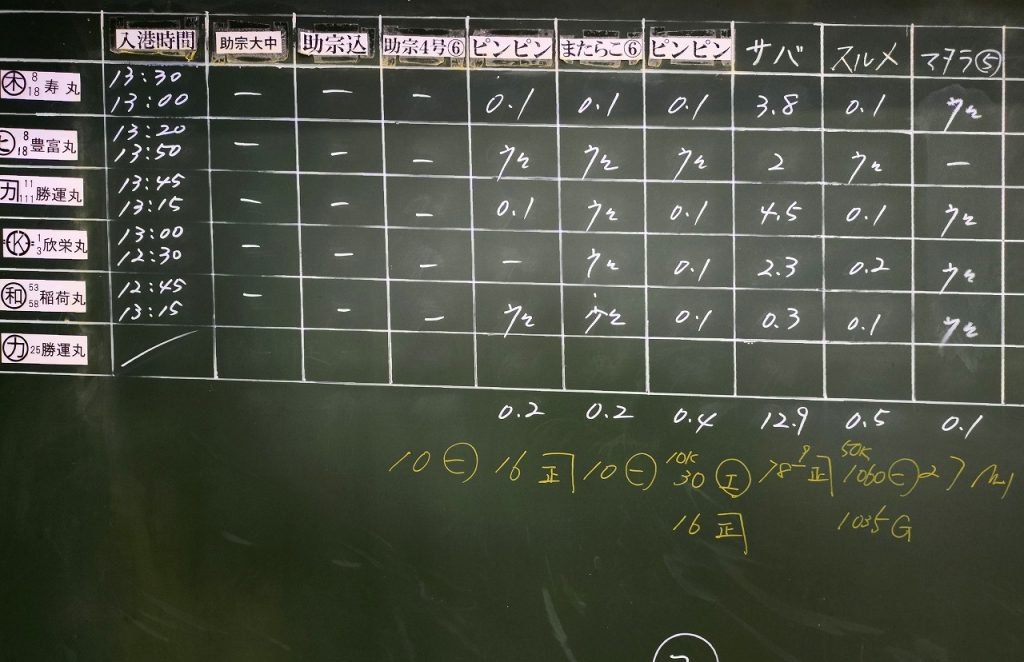 入港時間 助宗大中 助宗込 助宗4号⑥ ピンピン またらこ⑥ ピンピン サバ スルメ マタラ⑤
㊍ 8 18 寿丸 13:30 13:00 — — — 0.1 0.1 0.1 3.8 0.1 ウミ
ヒ 8 18 豊富丸 13:20 13:50 — — — ウミ ウミ ウミ 2 ウミ —
カ 11 111 勝運丸 13:45 13:15 — — — 0.1 ウミ 0.1 4.5 0.1 ウミ
K 1 3 欣栄丸 13:00 12:30 — — — — ウミ 0.1 2.3 0.2 ウミ
和 53 58 稲荷丸 12:45 13:15 — — — ウミ ウミ 0.1 0.3 0.1 ウミ
カ 25 勝運丸
0.2 0.2 0.4 12.9 0.5 0.1
10㊀ 16正 10㊀ 10K 30 エ 78 9 正 50K 1060㊀
16正 1035G